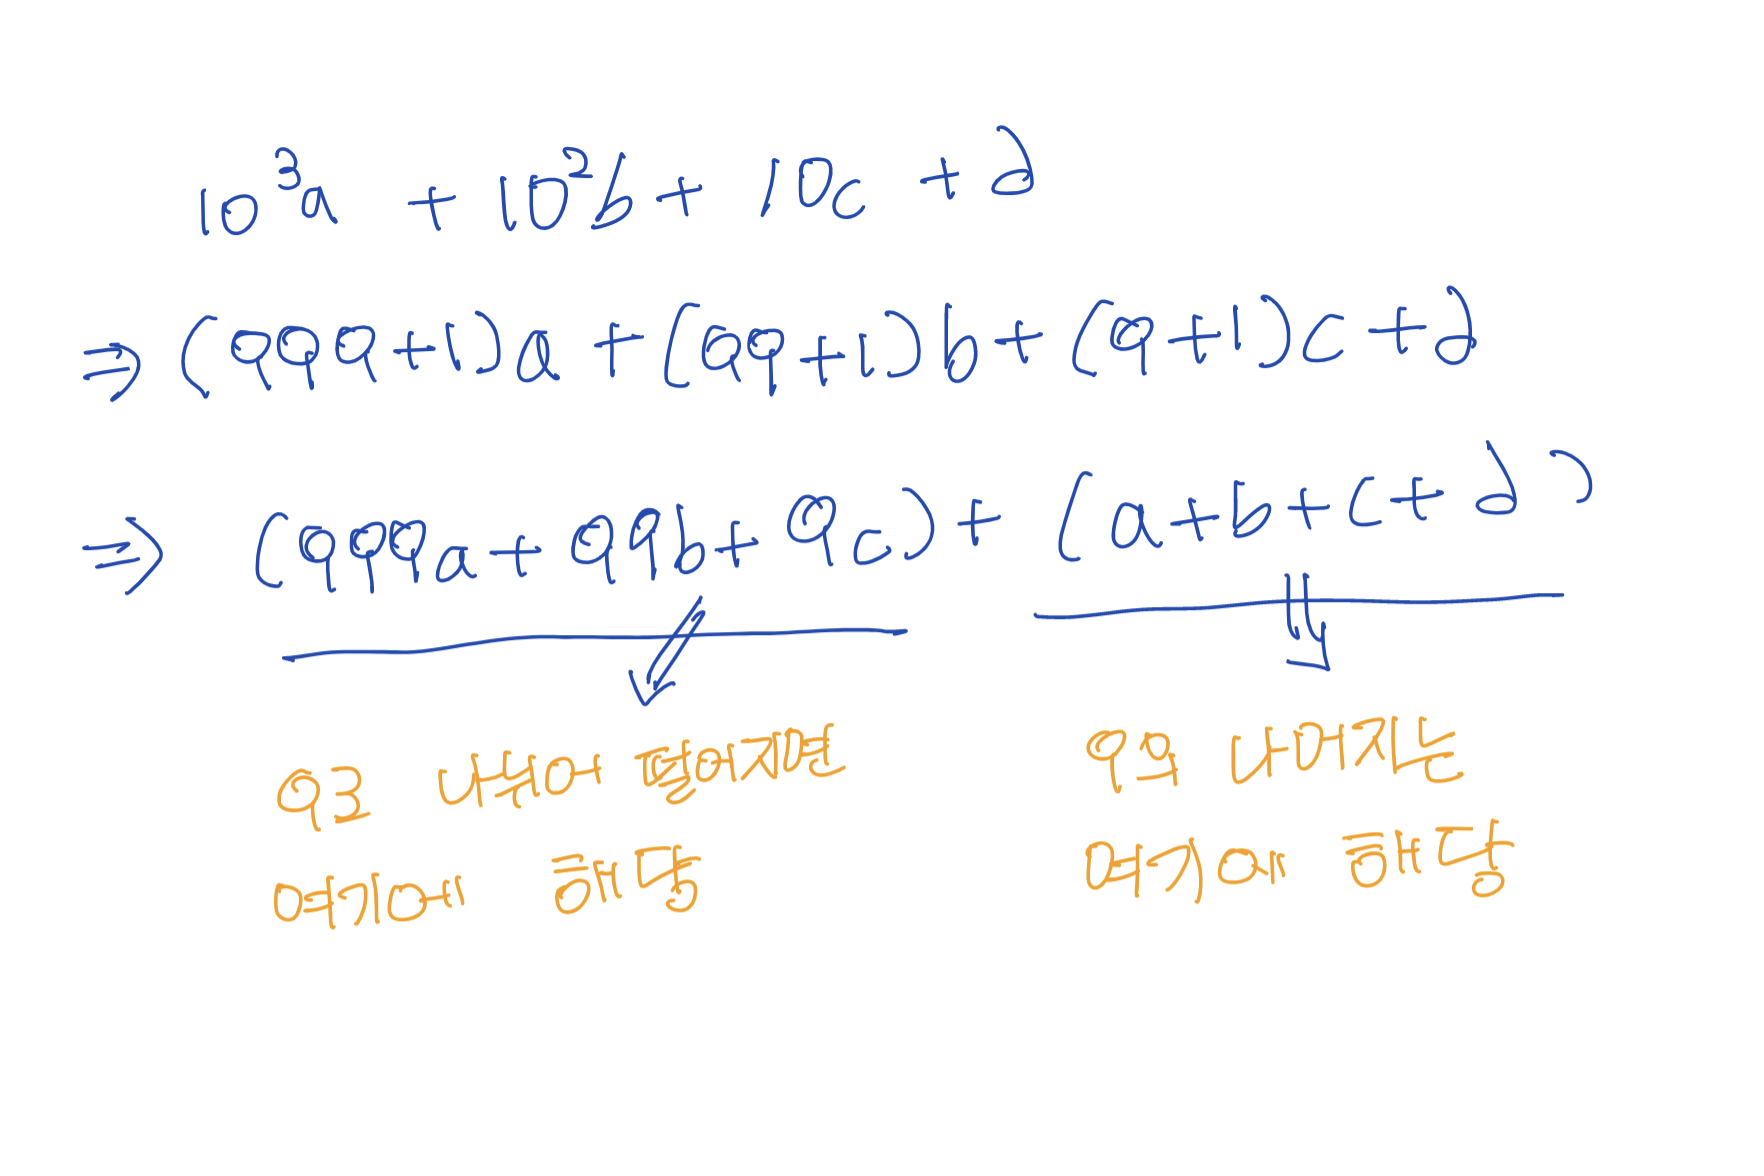 10³a + 10²b + 10c + d
⇒ (999+1)a + (99+1)b + (9+1)c + d
⇒ (999a + 99b + 9c) + (a+b+c+d)
9로 나눠어 떨어지면
여기에 해당
9의 나머지는
여기에 해당